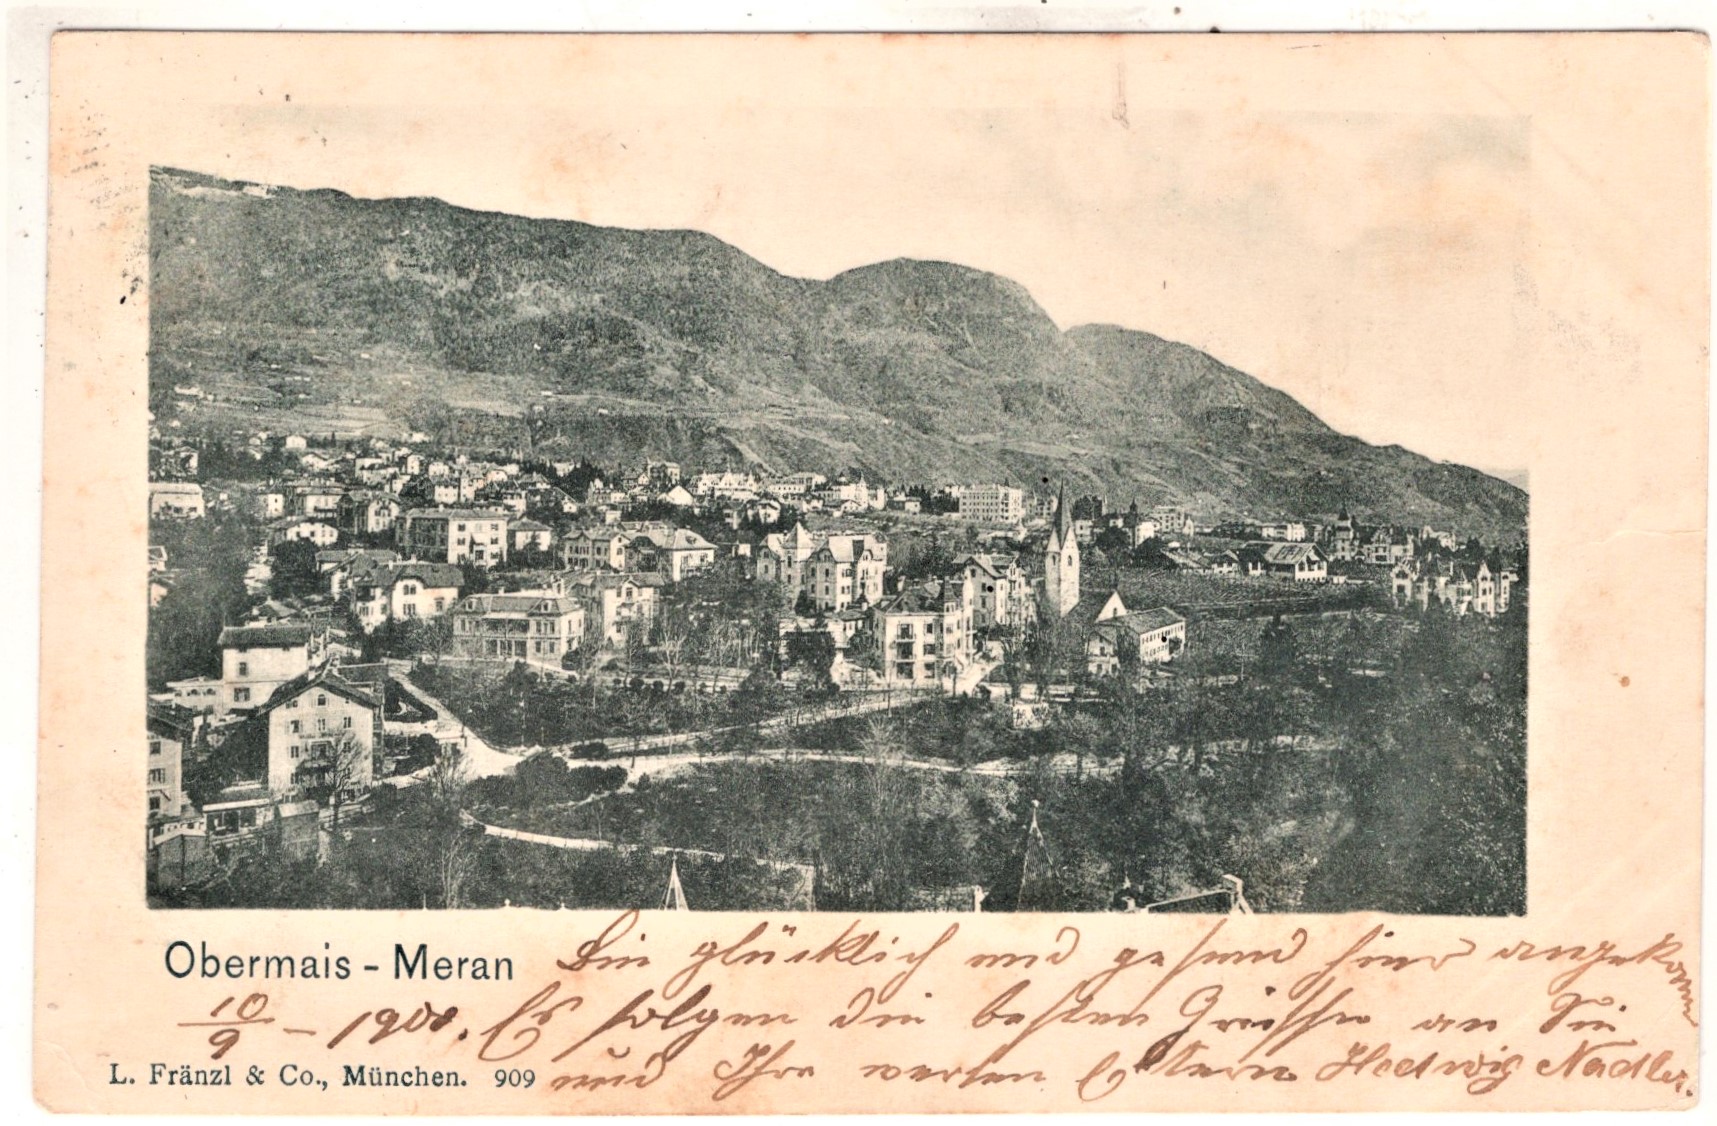 Obermais - Meran
Bin glücklich und gesund hier angekomm
10/9 - 1900. Es folgen die besten Grüsse an Sie
und Ihre werten Eltern Hedwig Nadler.
L. Fränzl & Co., München. 909